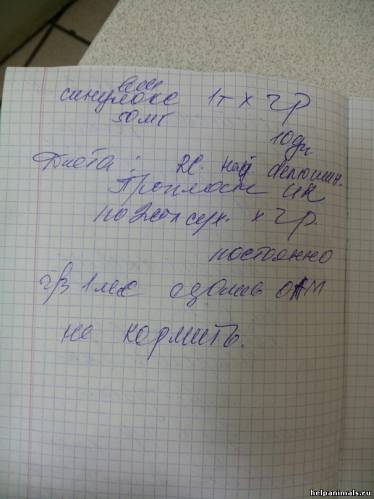 синулокс 1т х 2р
50мг
10дн
Диета: RC.
Проплан
по 2 ст.л сух. х 2р.
постоянно
ч/з 1 мес сдать ОАМ
не кормить.
helpanimals.ru